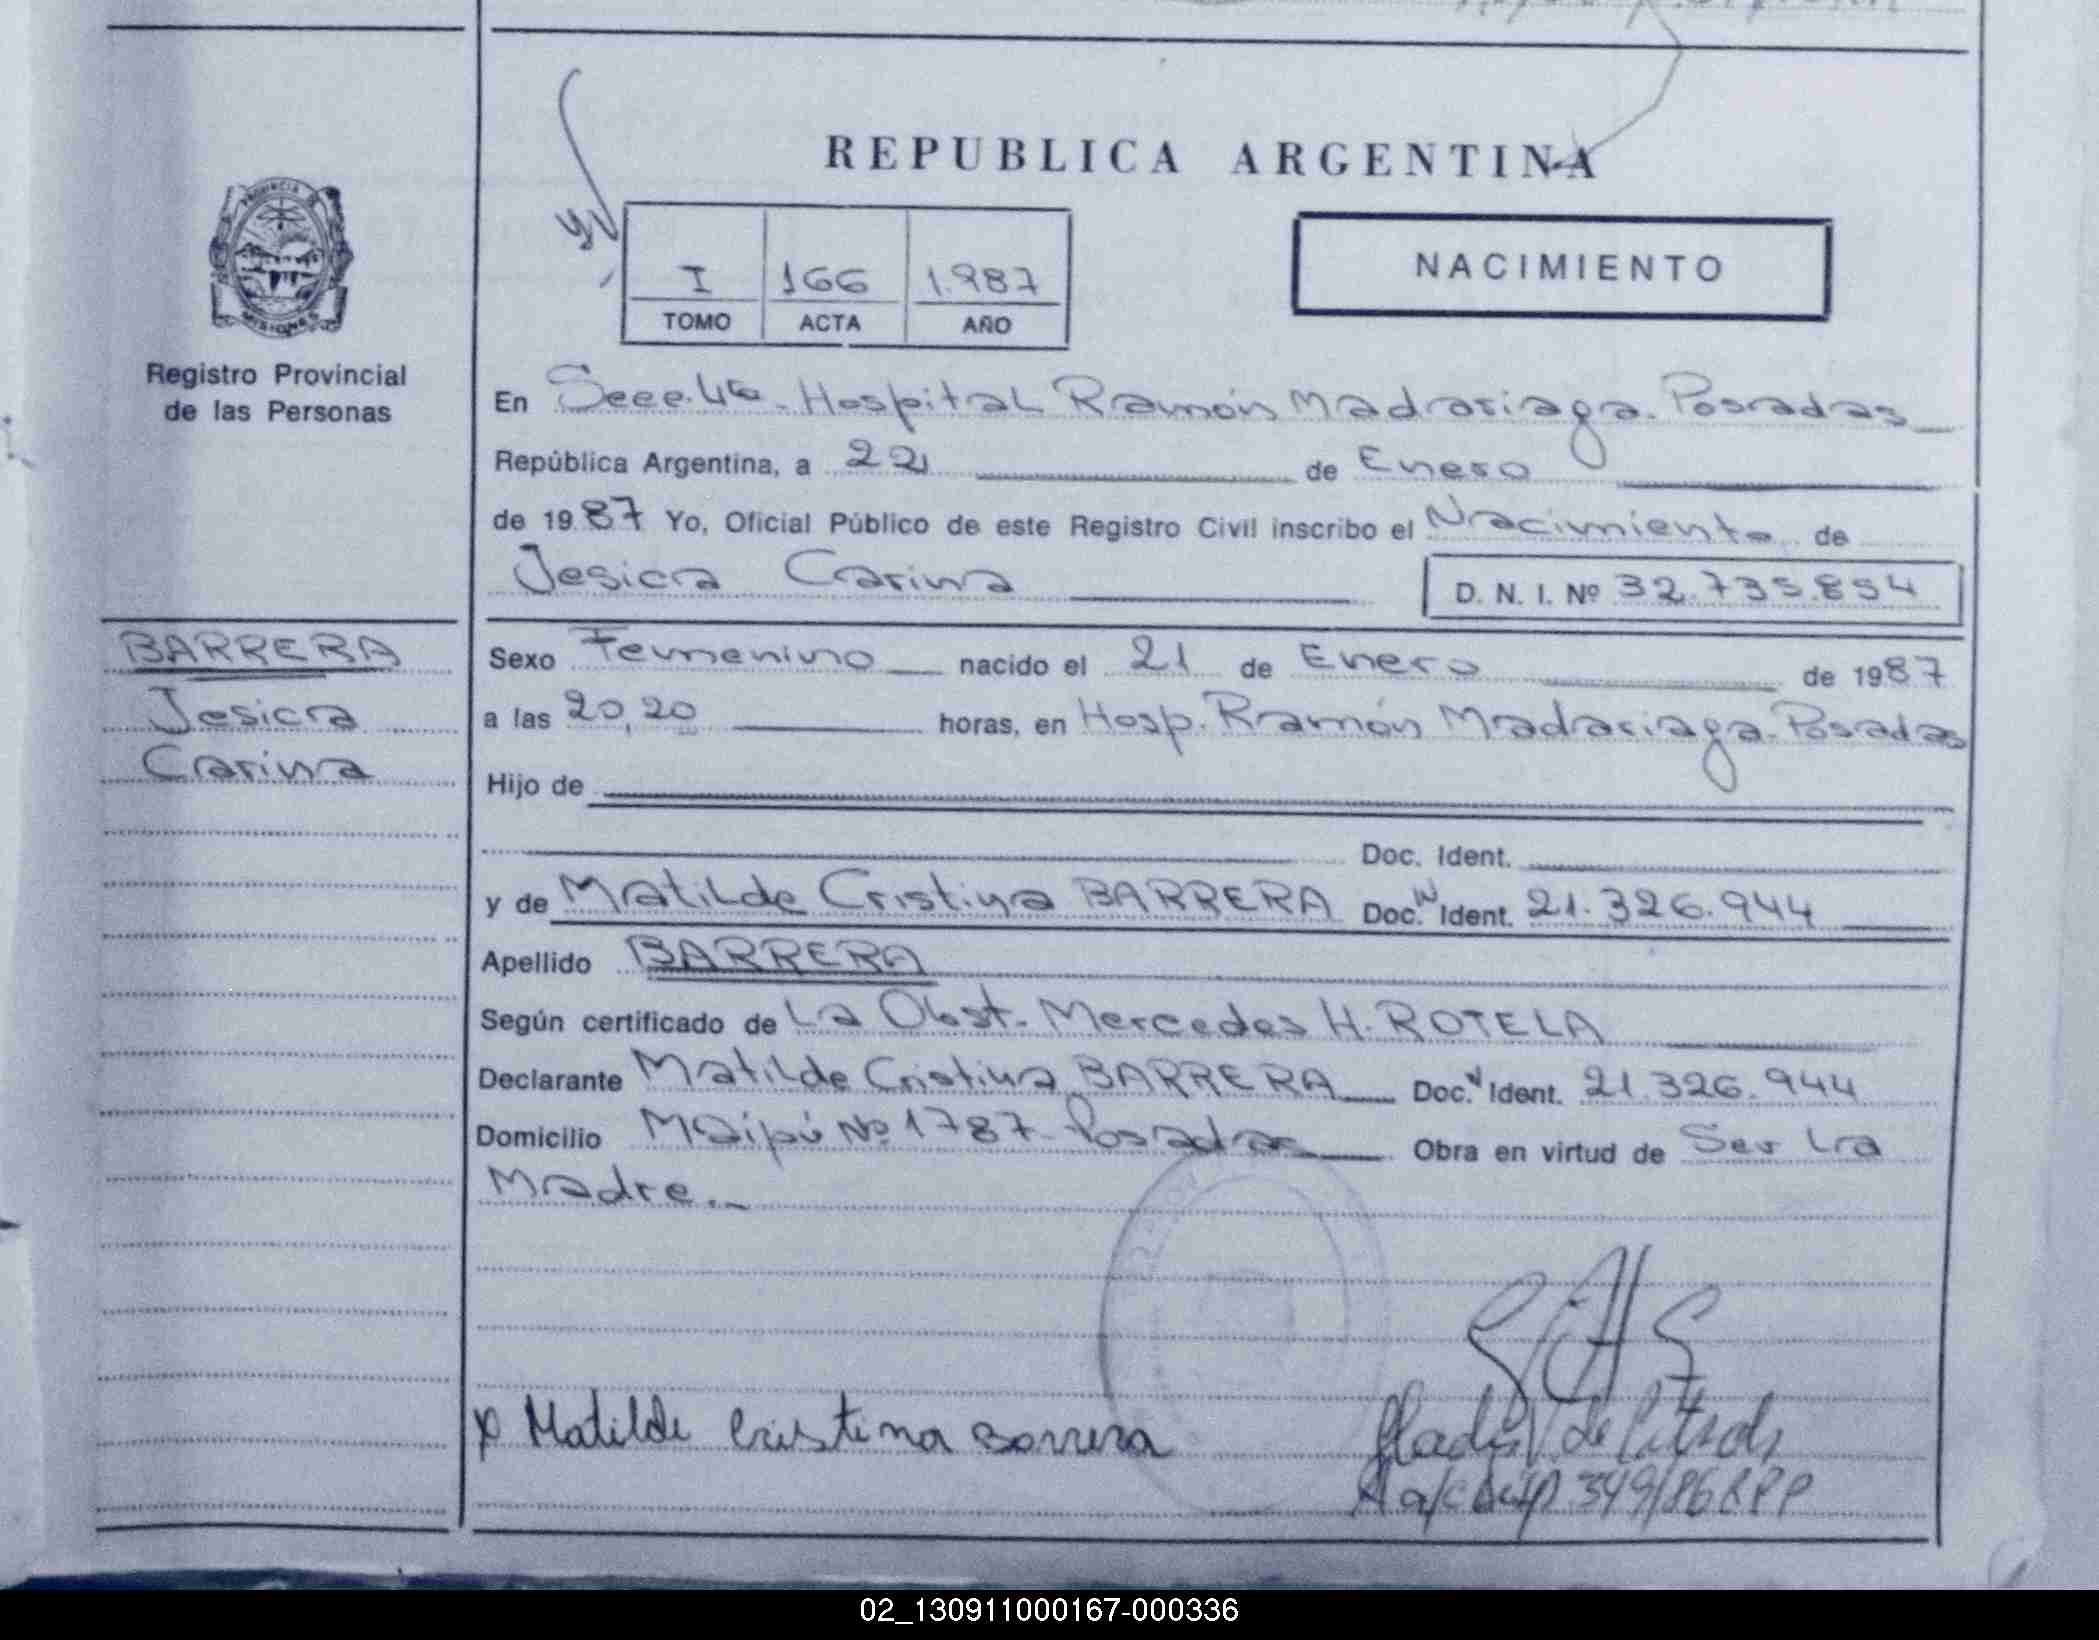 REPUBLICA ARGENTINA
PROVINCIA DE
MISIONES
Registro Provincial
de las Personas
I 166 1.987
TOMO ACTA AÑO
NACIMIENTO
En Secc. 4ta. Hospital Ramón Madariaga. Posadas
República Argentina, a 22 de Enero
de 1987 Yo, Oficial Público de este Registro Civil inscribo el Nacimiento de
Jesica Carina
D. N. I. Nº 32.735.854
BARRERA
Jesica
Carina
Sexo Femenino nacido el 21 de Enero de 1987
a las 20,20 horas, en Hosp. Ramón Madariaga. Posadas
Hijo de
Doc. Ident.
y de Matilde Cristina BARRERA Doc. Ident. 21.326.944
Apellido BARRERA
Según certificado de La Obst. Mercedes H. ROTELA
Declarante Matilde Cristina BARRERA Doc. Ident. 21.326.944
Domicilio Maipú Nº 1787 - Posadas Obra en virtud de Ser La
Madre.
x Matilde Cristina Barrera
349/86 RPP
02_130911000167-000336